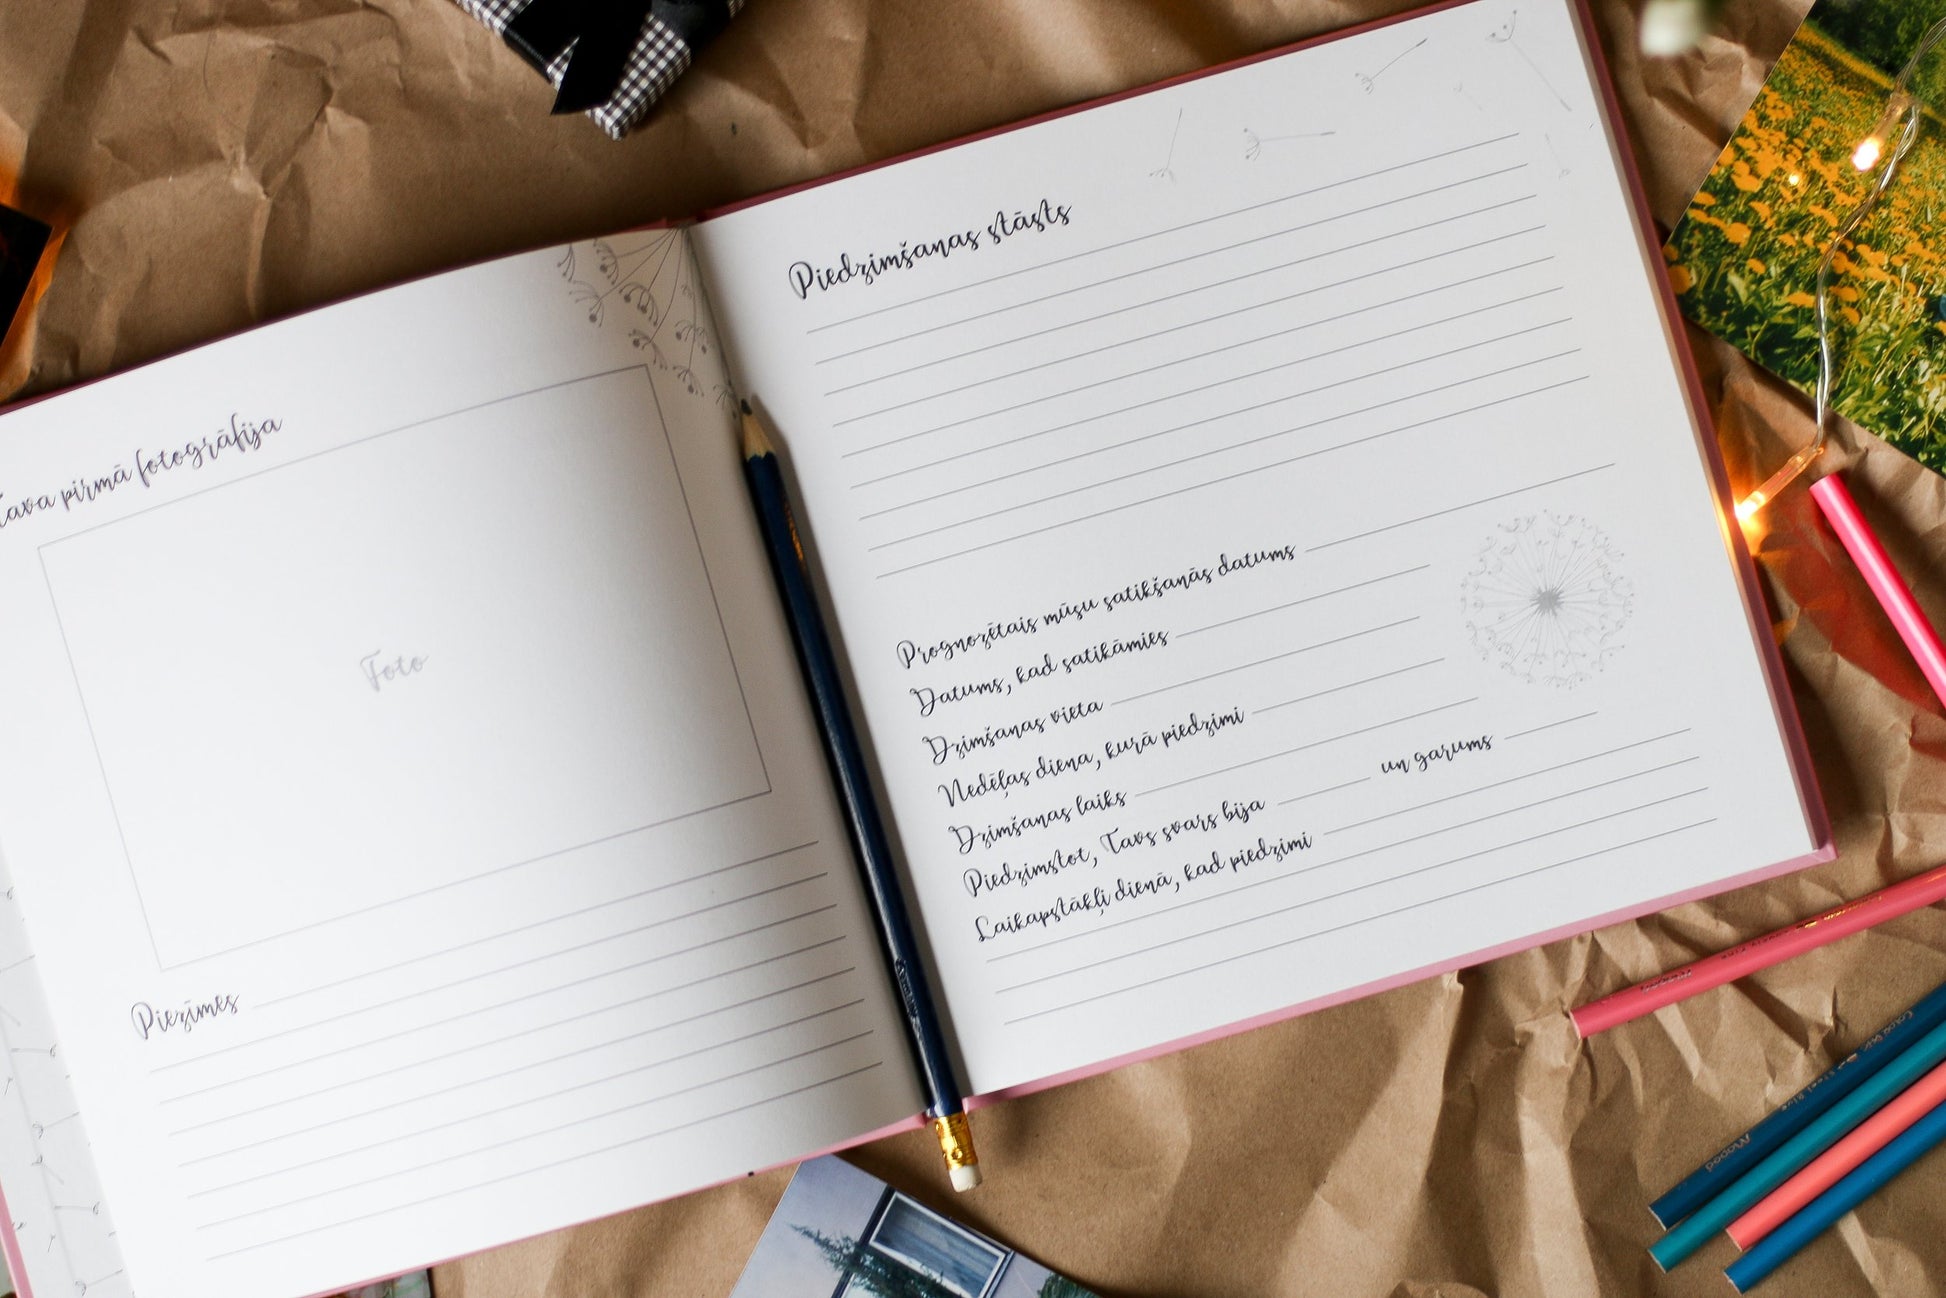 Tava pirmā fotogrāfija
Foto
Piezīmes
Piedzimšanas stāsts
Prognozētais mūsu satikšanās datums
Datums, kad satikāmies
Dzimšanas vieta
Nedēļas diena, kurā piedzimi
Dzimšanas laiks
Piedzimstot, Tavs svars bija un garums
Laikapstākļi dienā, kad piedzimi